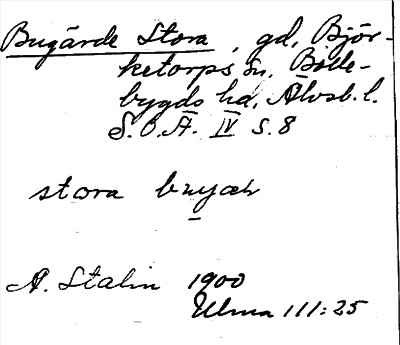 Bugärde Stora, gd, Björ-
ketorps sn, Bolle-
bygds hd, Älvsb. l.
S.O.Ä. IV s. 8
stora
A. Stalin 1900
Ulma 111:25